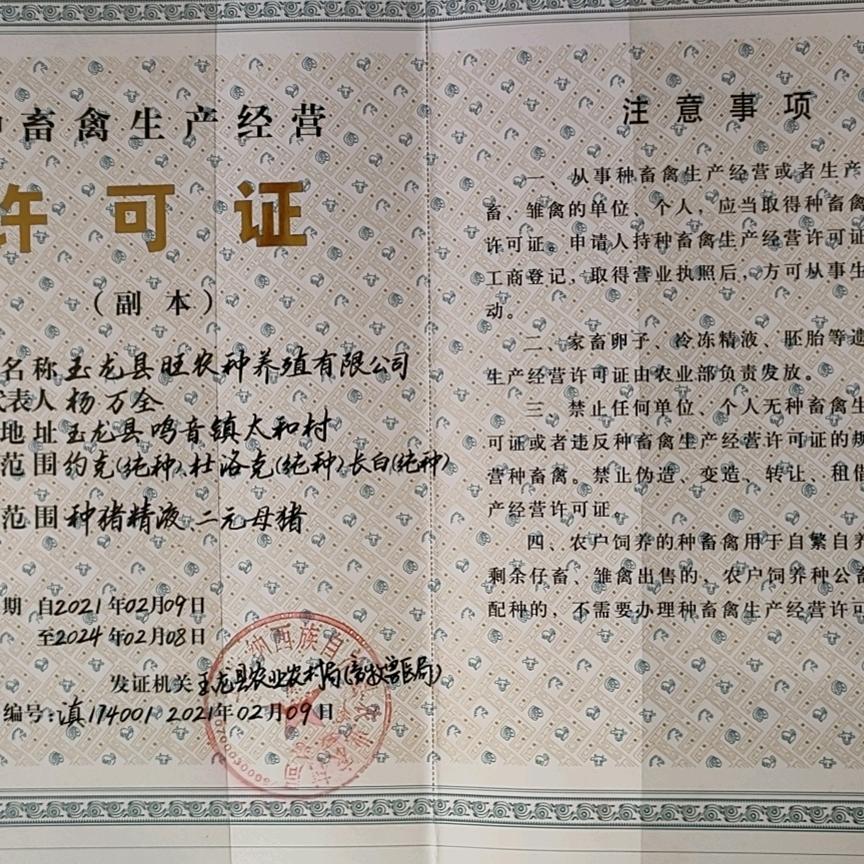 畜禽生产经营
许可证
（副本）
名称 玉龙县旺农种养殖有限公司
代表人 杨万全
地址 玉龙县鸣音镇太和村
范围 约克(纯种)、杜洛克(纯种)长白(纯种)
范围 种猪精液、二元母猪
期 自2021年02月09日
至2024年02月08日
发证机关 玉龙县农业农村局(畜牧兽医局)
编号：滇174001 2021年02月09日
纳西族自
注意事项
一、从事种畜禽生产经营或者生产
畜、雏禽的单位、个人，应当取得种畜禽
许可证。申请人持种畜禽生产经营许可证
工商登记，取得营业执照后，方可从事生
动。
二、家畜卵子、冷冻精液、胚胎等遗
生产经营许可证由农业部负责发放。
三、禁止任何单位、个人无种畜禽生
可证或者违反种畜禽生产经营许可证的规
营种畜禽。禁止伪造、变造、转让、租借
产经营许可证。
四、农户饲养的种畜禽用于自繁自养
剩余仔畜、雏禽出售的，农户饲养种公畜
配种的，不需要办理种畜禽生产经营许可